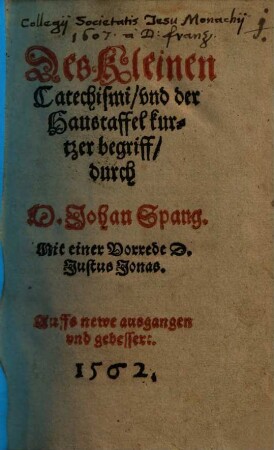 Collegij Societatis Iesu Monachij
1607. à D: franz.
Des Kleinen
Catechismi/vnd der
Haustaffel kur-
tzer begriff/
durch
D. Johan Spang.
Mit einer Vorrede D.
Justus Jonas.
Auffs newe ausgangen
vnd gebessert.
1562.